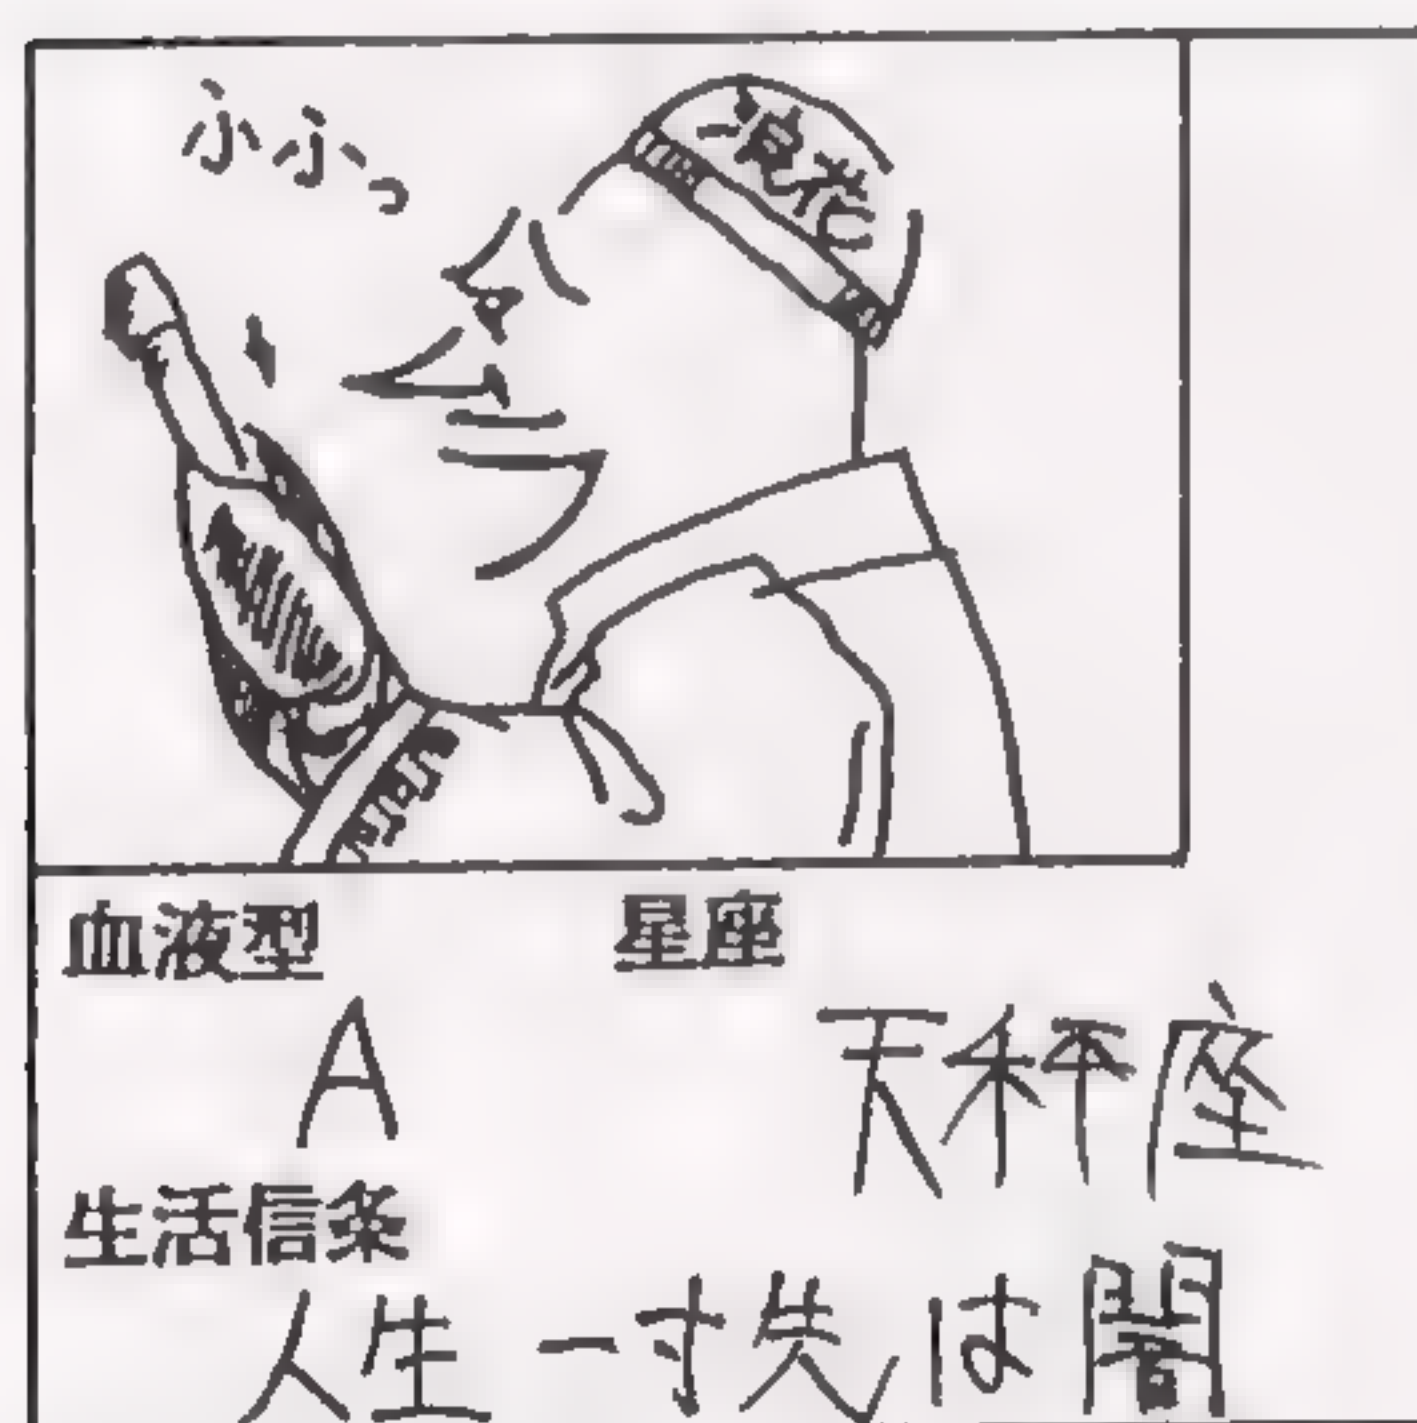 ふふっ
浪花
血液型 星座
A 天秤座
生活信条
人生一寸先は闇